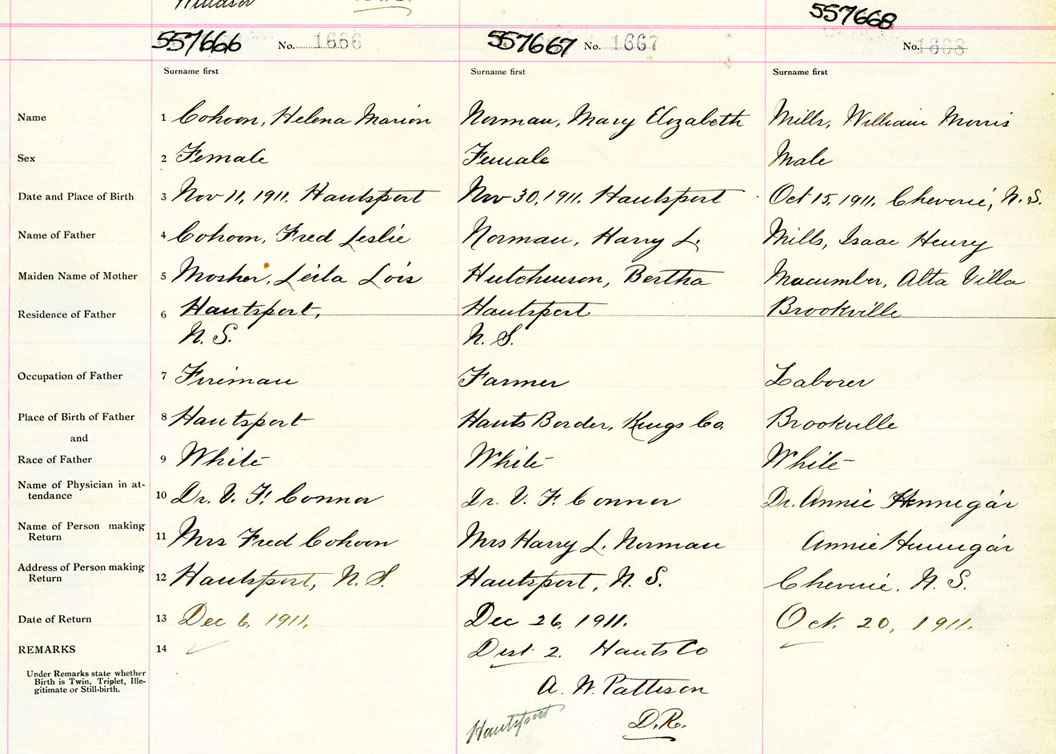 Windsor
557668
557666 No. 1666 557667 No. 1667 No. 1668
Surname first Surname first Surname first
Name 1 Cohoon, Helena Marion Norman, Mary Elizabeth Mills, William Morris
Sex 2 Female Female Male
Date and Place of Birth 3 Nov 11, 1911. Hantsport Nov 30, 1911. Hantsport Oct 15, 1911. Cheverie, N.S.
Name of Father 4 Cohoon, Fred Leslie Norman, Harry L. Mills, Isaac Henry
Maiden Name of Mother 5 Mosher, Leila Lois Hutchinson, Bertha Macumber, Alta Villa
Residence of Father 6 Hantsport, Hantsport Brookville
N. S. N. S.
Occupation of Father 7 Fireman Farmer Laborer
Place of Birth of Father 8 Hantsport Hants Border, Kings Co Brookville
and
Race of Father 9 White White White
Name of Physician in at-
tendance 10 Dr. V. F. Connor Dr. V. F. Connor Dr. Annie Hennegar
Name of Person making
Return 11 Mrs Fred Cohoon Mrs Harry L. Norman Annie Hennegar
Address of Person making
Return 12 Hantsport, N. S. Hantsport, N. S. Cheverie, N. S.
Date of Return 13 Dec 6, 1911. Dec 26, 1911. Oct. 20, 1911.
REMARKS 14 Dist 2. Hants Co
Under Remarks state whether
Birth is Twin, Triplet, Ille-
gitimate or Still-birth.
A. W. Patteson
Hantsport D.R.